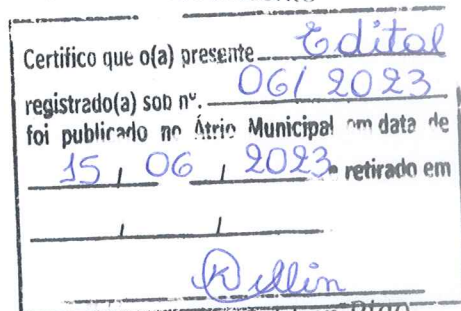 Certifico que o(a) presente Edital
registrado(a) sob nº. 06/2023
foi publicado no Átrio Municipal em data de
15 / 06 / 2023 retirado em
/ /